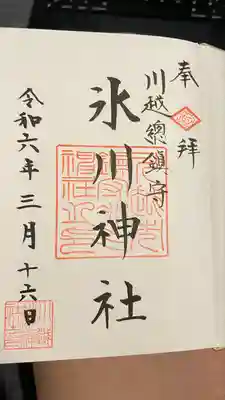 奉拝
川越總鎮守
氷川神社
令和六年三月十六日